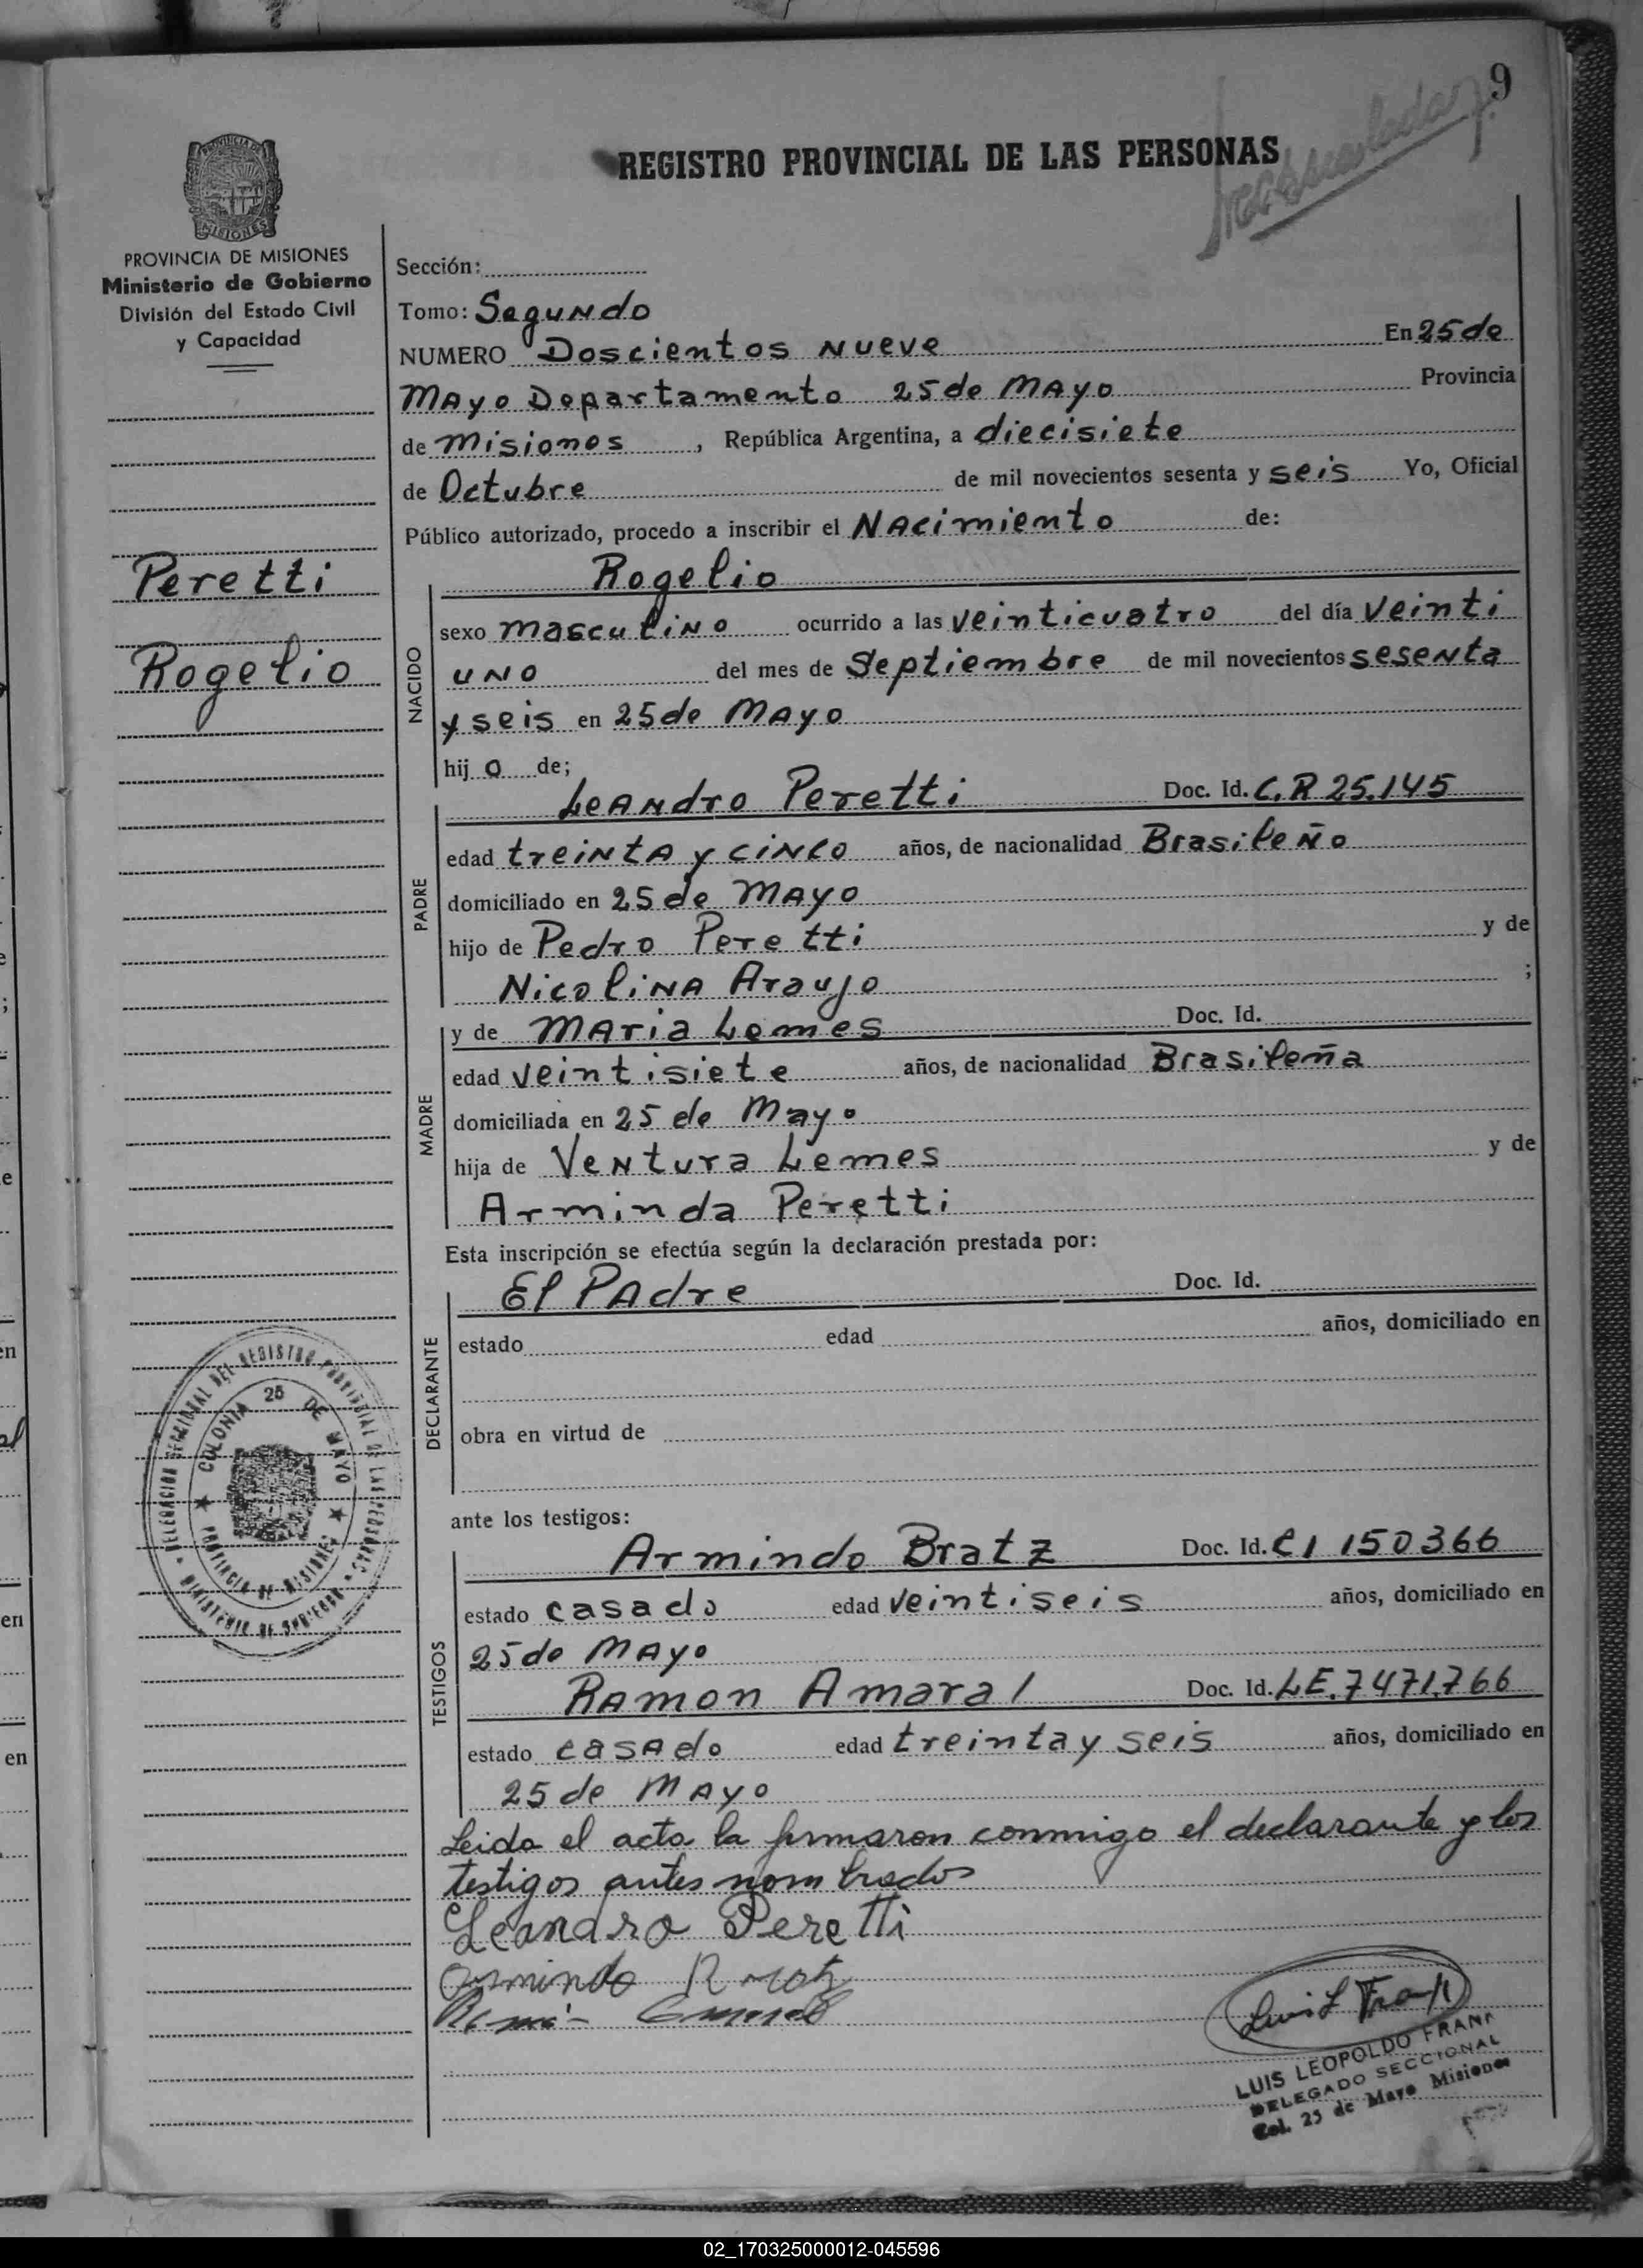 9
REGISTRO PROVINCIAL DE LAS PERSONAS
PROVINCIA DE MISIONES
MISIONES
PROVINCIA DE MISIONES
Ministerio de Gobierno
División del Estado Civil
y Capacidad
Peretti
Rogelio
Sección:
Tomo: Segundo
NUMERO Doscientos Nueve En 25 de
Mayo Departamento 25 de Mayo Provincia
de Misiones, República Argentina, a diecisiete
de Octubre de mil novecientos sesenta y seis Yo, Oficial
Público autorizado, procedo a inscribir el Nacimiento de:
NACIDO
Rogelio
sexo masculino ocurrido a las veinticuatro del día veinti
uno del mes de Septiembre de mil novecientos sesenta
y seis en 25 de Mayo
hijo de;
PADRE
Leandro Peretti Doc. Id. C.R 25.145
edad treinta y cinco años, de nacionalidad Brasileño
domiciliado en 25 de Mayo
hijo de Pedro Peretti y de
Nicolina Araujo ;
MADRE
y de Maria Lemes Doc. Id.
edad veintisiete años, de nacionalidad Brasileña
domiciliada en 25 de Mayo
hija de Ventura Lemes y de
Arminda Peretti
Esta inscripción se efectúa según la declaración prestada por:
DECLARANTE
El Padre Doc. Id.
estado edad años, domiciliado en
obra en virtud de
ante los testigos:
TESTIGOS
Armindo Bratz Doc. Id. CI 150366
estado casado edad veintiseis años, domiciliado en
25 de Mayo
Ramon Amaral Doc. Id. LE.7471.766
estado casado edad treinta y seis años, domiciliado en
25 de Mayo
Leida el acta la firmaron conmigo el declarante y los
testigos antes nombrados
Leandro Peretti
Armindo
Luis L Frank
LUIS LEOPOLDO FRANK
DELEGADO SECCIONAL
Col. 25 de Mayo Misiones
DELEGACION SECCIONAL DEL REGISTRO PROVINCIAL DE LAS PERSONAS
MINISTERIO DE GOBIERNO
COLONIA 25 DE MAYO
PROVINCIA DE MISIONES
02_170325000012-045596